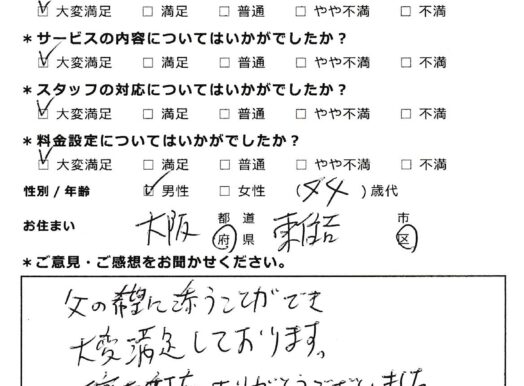 ☑ 大変満足 □ 満足 □ 普通 □ やや不満 □ 不満
*サービスの内容についてはいかがでしたか?
☑ 大変満足 □ 満足 □ 普通 □ やや不満 □ 不満
*スタッフの対応についてはいかがでしたか?
☑ 大変満足 □ 満足 □ 普通 □ やや不満 □ 不満
*料金設定についてはいかがでしたか?
☑ 大変満足 □ 満足 □ 普通 □ やや不満 □ 不満
性別/年齢 ☑ 男性 □ 女性 ( )歳代
お住まい 大阪 都道府県 東住吉 市区
*ご意見・ご感想をお聞かせください。
父の希望に添うことができ
大変満足しております。
ありがとうございました